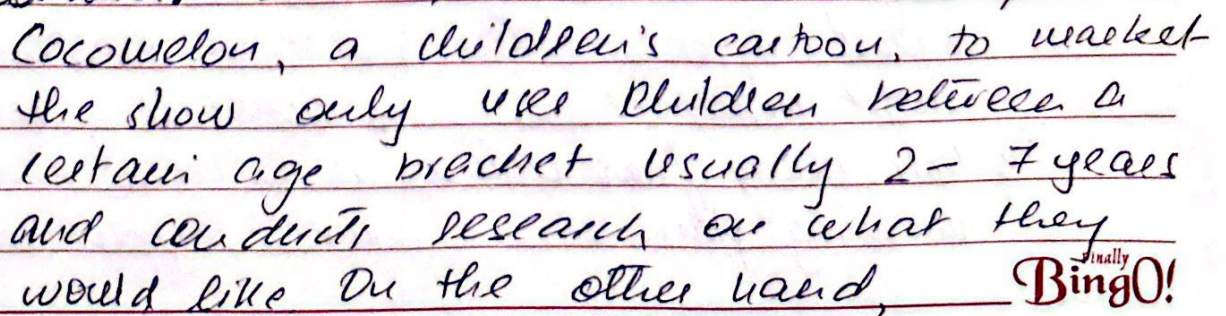 Cocomelon, a children's cartoon, to market
the show only use children between a
certain age bracket usually 2 - 7 years
and conducts research on what they
would like On the other hand,
Finally
BingO!